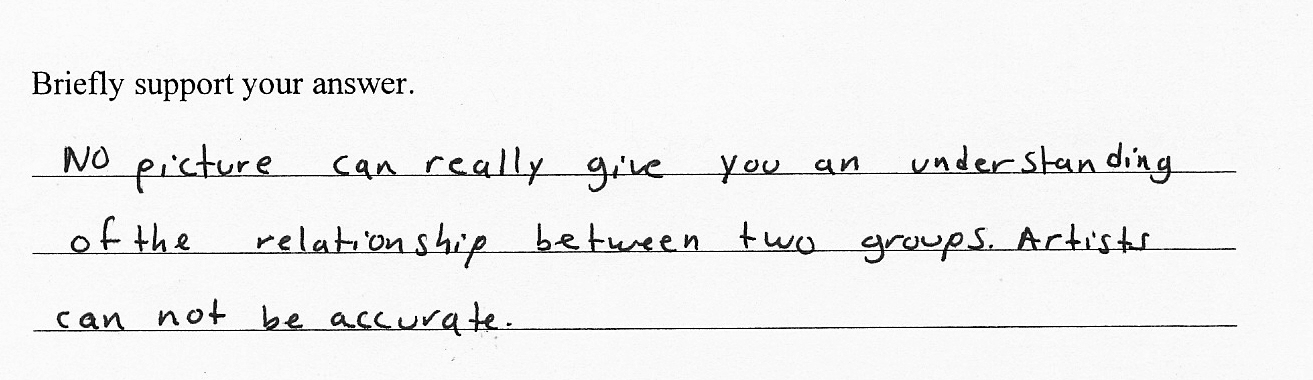 Briefly support your answer.
No picture can really give you an understanding
of the relationship between two groups. Artists
can not be accurate.